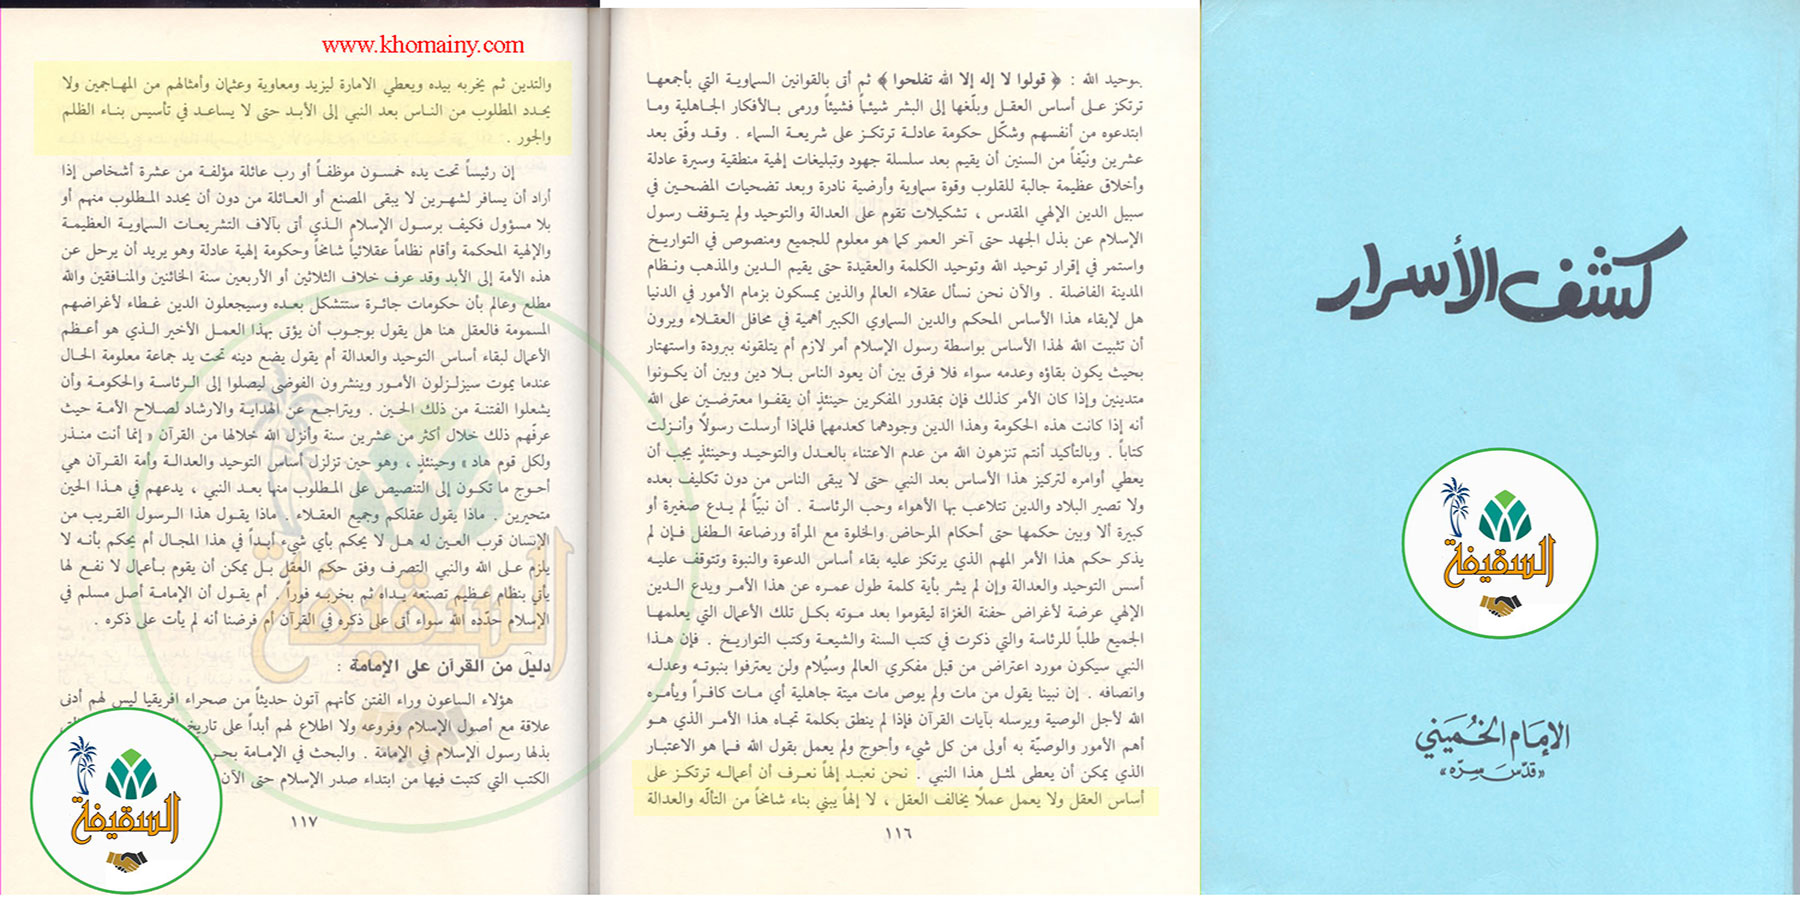 كشف الأسرار
الإمام الخميني
«قدّس سرّه»
السقيفة
بتوحيد الله : ﴿ قولوا لا إله إلا الله تفلحوا ﴾ ثم أتى بالقوانين السماوية التي بأجمعها
ترتكز على أساس العقل وبلّغها إلى البشر شيئاً فشيئاً ورمى بالأفكار الجاهلية وما
ابتدعوه من أنفسهم وشكّل حكومة عادلة ترتكز على شريعة السماء . وقد وفّق بعد
عشرين ونيّفاً من السنين أن يقيم بعد سلسلة جهود وتبليغات إلهية منطقية وسيرة عادلة
وأخلاق عظيمة جالبة للقلوب وقوة سماوية وأرضية نادرة وبعد تضحيات المضحين في
سبيل الدين الإلهي المقدس ، تشكيلات تقوم على العدالة والتوحيد ولم يتوقف رسول
الإسلام عن بذل الجهد حتى آخر العمر كما هو معلوم للجميع ومنصوص في التواريخ
واستمر في إقرار توحيد الله وتوحيد الكلمة والعقيدة حتى يقيم الدين والمذهب ونظام
المدينة الفاضلة . والآن نحن نسأل عقلاء العالم والذين يمسكون بزمام الأمور في الدنيا
هل لإبقاء هذا الأساس المحكم والدين السماوي الكبير أهمية في محافل العقلاء ويرون
أن تثبيت الله لهذا الأساس بواسطة رسول الإسلام أمر لازم أم يتلقونه ببرودة واستهتار
بحيث يكون بقاؤه وعدمه سواء فلا فرق بين أن يعود الناس بلا دين وبين أن يكونوا
متدينين وإذا كان الأمر كذلك فإن بمقدور المفكرين حينئذٍ أن يقفوا معترضين على الله
أنه إذا كانت هذه الحكومة وهذا الدين وجودهما كعدمهما فلماذا أرسلت رسولاً وأنزلت
كتاباً . وبالتأكيد أنتم تنزهون الله من عدم الاعتناء بالعدل والتوحيد وحينئذٍ يجب أن
يعطي أوامره لتركيز هذا الأساس بعد النبي حتى لا يبقى الناس من دون تكليف بعده
ولا تصير البلاد والدين تتلاعب بها الأهواء وحب الرئاسة . أن نبيّاً لم يدع صغيرة أو
كبيرة ألا وبين حكمها حتى أحكام المرحاض والخلوة مع المرأة ورضاعة الطفل فإن لم
يذكر حكم هذا الأمر المهم الذي يرتكز عليه بقاء أساس الدعوة والنبوة وتتوقف عليه
أسس التوحيد والعدالة وإن لم يشر بأية كلمة طول عمره عن هذا الأمر ويدع الدين
الإلهي عرضة لأغراض حفنة الغزاة ليقوموا بعد موته بكل تلك الأعمال التي يعلمها
الجميع طلباً للرئاسة والتي ذكرت في كتب السنة والشيعة وكتب التواريخ . فإن هذا
النبي سيكون مورد اعتراض من قبل مفكري العالم وسيُلام ولن يعترفوا بنبوته وعدله
وانصافه . إن نبينا يقول من مات ولم يوص مات ميتة جاهلية أي مات كافراً ويأمره
الله لأجل الوصية ويرسله بآيات القرآن فإذا لم ينطق بكلمة تجاه هذا الأمر الذي هو
أهم الأمور والوصيّة به أولى من كل شيء وأحوج ولم يعمل بقول الله فما هو الاعتبار
الذي يمكن أن يعطى لمثل هذا النبي . نحن نعبد إلهاً نعرف أن أعماله ترتكز على
أساس العقل ولا يعمل عملًا يخالف العقل ، لا إلهاً يبني بناء شامخاً من التألّه والعدالة
١١٦
www.khomainy.com
والتدين ثم يخربه بيده ويعطي الامارة ليزيد ومعاوية وعثمان وأمثالهم من المهاجمين ولا
يحدد المطلوب من الناس بعد النبي إلى الأبد حتى لا يساعد في تأسيس بناء الظلم
والجور .
إن رئيساً تحت يده خمسون موظفاً أو رب عائلة مؤلفة من عشرة أشخاص إذا
أراد أن يسافر لشهرين لا يبقى المصنع أو العائلة من دون أن يحدد المطلوب منهم أو
بلا مسؤول فكيف برسول الإسلام الذي أتى بآلاف التشريعات السماوية العظيمة
والإلهية المحكمة وأقام نظاماً عقلائياً شامخاً وحكومة إلهية عادلة وهو يريد أن يرحل عن
هذه الأمة إلى الأبد وقد عرف خلاف الثلاثين أو الأربعين سنة الخائنين والمنافقين والله
مطلع وعالم بأن حكومات جائرة ستتشكل بعده وسيجعلون الدين غطاء لأغراضهم
المسمومة فالعقل هنا هل يقول بوجوب أن يؤتى بهذا العمل الأخير الذي هو أعظم
الأعمال لبقاء أساس التوحيد والعدالة أم يقول يضع دينه تحت يد جماعة معلومة الحال
عندما يموت سيزلزلون الأمور وينشرون الفوضى ليصلوا إلى الرئاسة والحكومة وأن
يشعلوا الفتنة من ذلك الحين . ويتراجع عن الهداية والارشاد لصلاح الأمة حيث
عرفهم ذلك خلال أكثر من عشرين سنة وأنزل الله خلالها من القرآن « إنما أنت منذر
ولكل قوم هاد » وحينئذٍ ، وهو حين تزلزل أساس التوحيد والعدالة وأمة القرآن هي
أحوج ما تكون إلى التنصيص على المطلوب منها بعد النبي ، يدعهم في هذا الحين
متحيرين . ماذا يقول عقلكم وجميع العقلاء . ماذا يقول هذا الرسول القريب من
الإنسان قرب العين له هل لا يحكم بأي شيء أبداً في هذا المجال أم يحكم بأنه لا
يلزم على الله والنبي التصرف وفق حكم العقل بل يمكن أن يقوم بأعمال لا نفع لها
يأتي بنظام عظيم تصنعه يداه ثم يخربه فوراً . أم يقول أن الإمامة أصل مسلم في
الإسلام حدّده الله سواء أتى على ذكره في القرآن أم فرضنا أنه لم يأت على ذكره .
دليل من القرآن على الإمامة :
هؤلاء الساعون وراء الفتن كأنهم آتون حديثاً من صحراء افريقيا ليس لهم أدنى
علاقة مع أصول الإسلام وفروعه ولا اطلاع لهم أبداً على تاريخ
بذلها رسول الإسلام في الإمامة . والبحث في الإمامة
الكتب التي كتبت فيها من ابتداء صدر الإسلام حتى الآن
١١٧
السقيفة
السقيفة